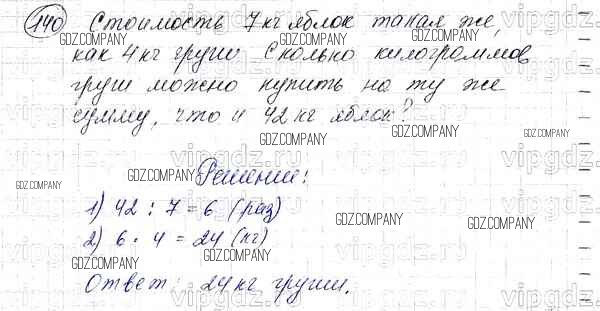 140 Стоимость 7 кг яблок такая же,
как 4 кг груши. Сколько килограммов
груш можно купить на ту же
сумму, что и 42 кг яблок?
Решение:
1) 42 : 7 = 6 (раз)
2) 6 · 4 = 24 (кг)
Ответ: 24 кг груши.
GDZ.COMPANY
vipgdz.ru